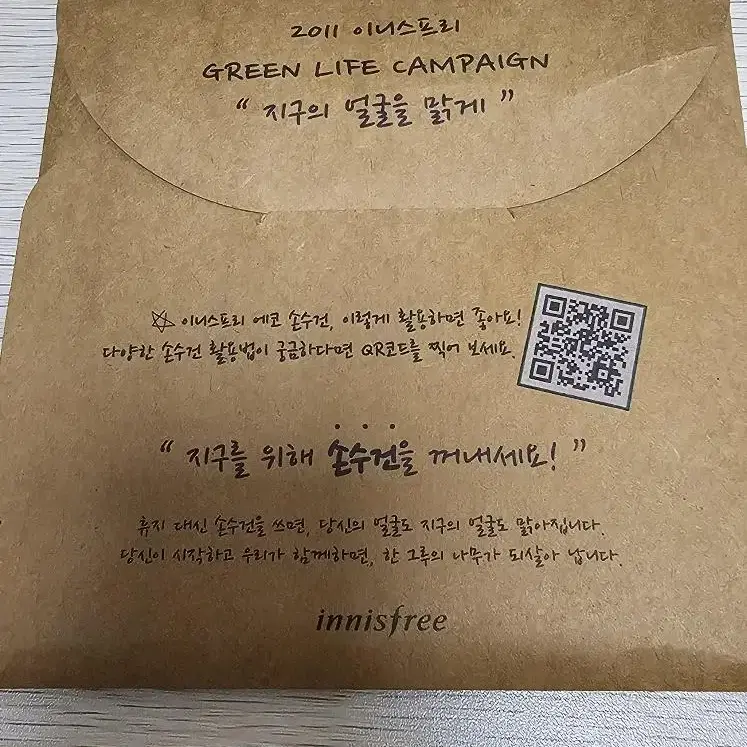 2011 이니스프리
GREEN LIFE CAMPAIGN
“ 지구의 얼굴을 맑게 ”
☆ 이니스프리 에코 손수건, 이렇게 활용하면 좋아요!
다양한 손수건 활용법이 궁금하다면 QR코드를 찍어 보세요.
“ 지구를 위해 손수건을 꺼내세요! ”
휴지 대신 손수건을 쓰면, 당신의 얼굴도 지구의 얼굴도 맑아집니다.
당신이 시작하고 우리가 함께하면, 한 그루의 나무가 되살아 납니다.
innisfree